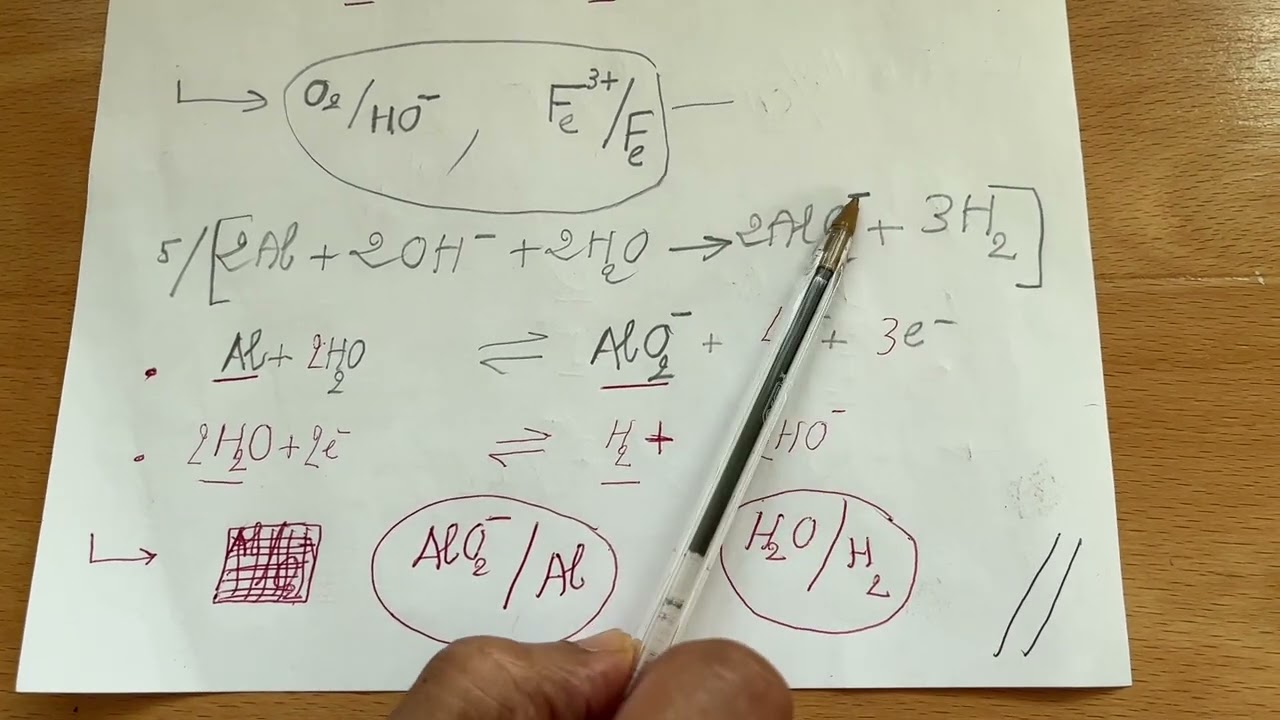 ↳ O₂/HO⁻ , Fe³⁺/Fe —
5/ [2Al + 2OH⁻ + 2H₂O → 2AlO₂⁻ + 3H₂]
• Al + 2H₂O ⇌ AlO₂⁻ + + 3e⁻
• 2H₂O + 2e⁻ ⇌ H₂ + HO⁻
↳ AlO₂⁻/Al H₂O/H₂ //